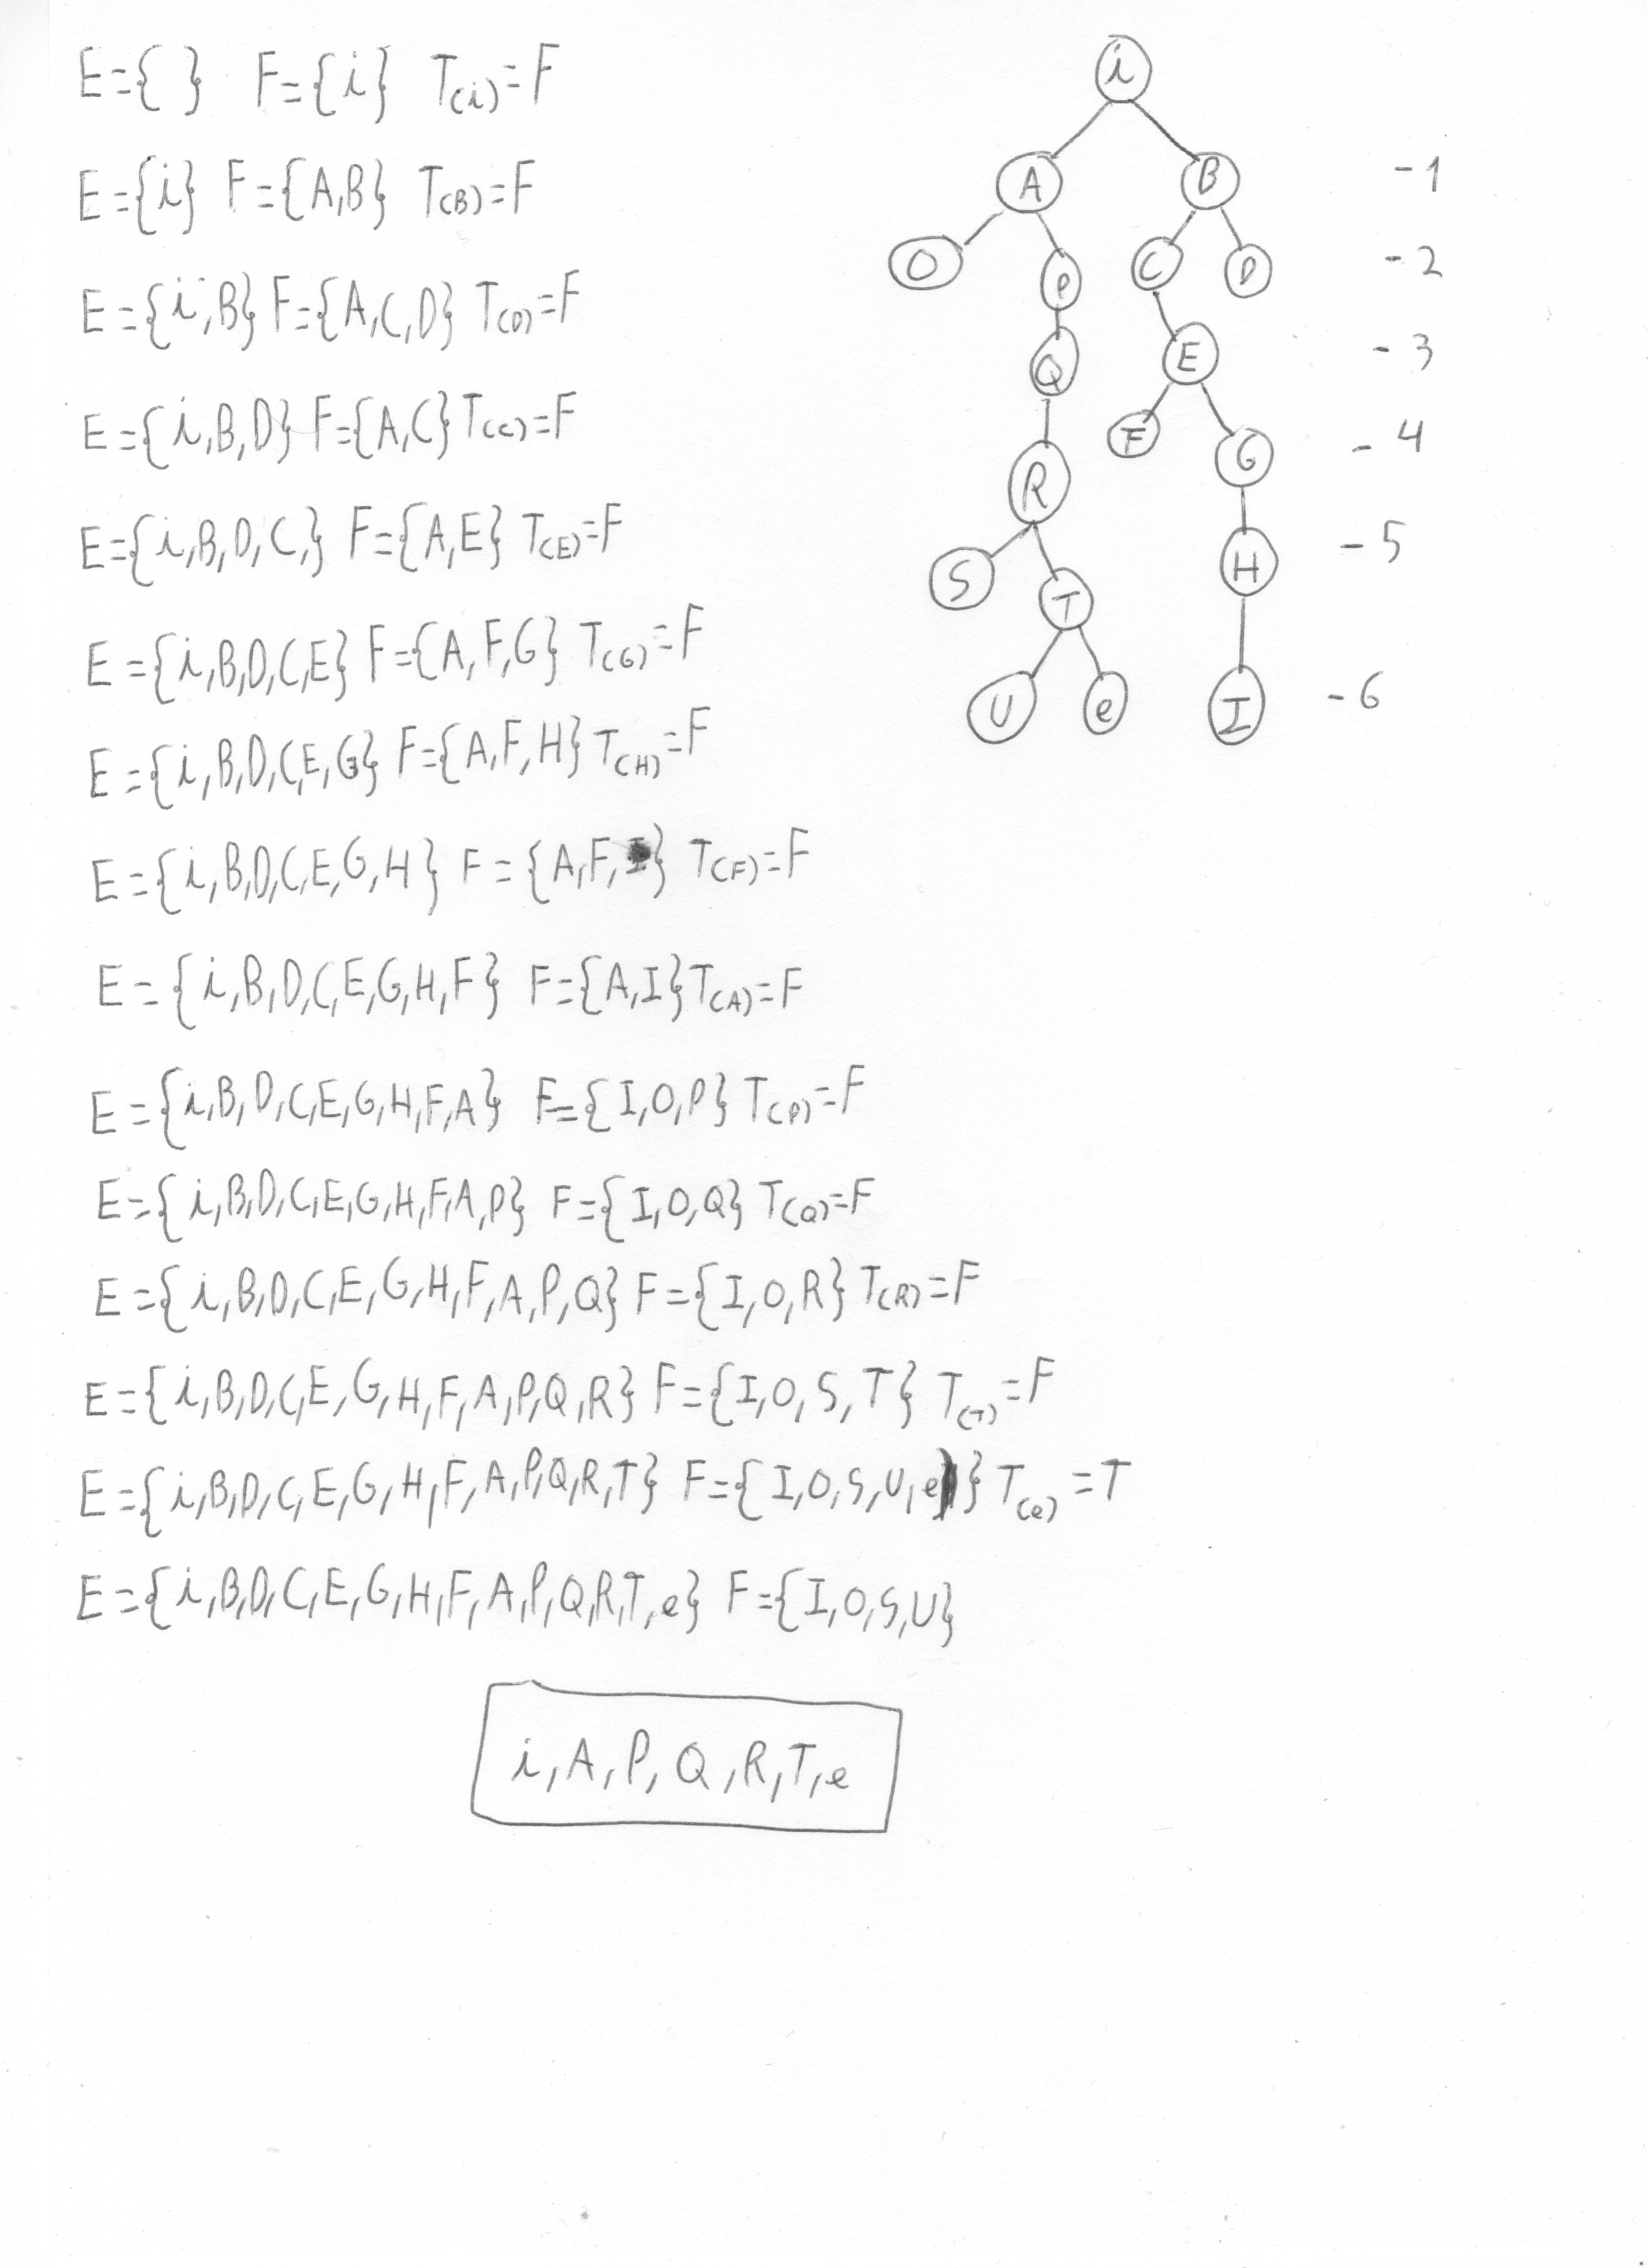 E={ } F={i} T(i)=F
E={i} F={A,B} T(B)=F
E={i,B} F={A,C,D} T(D)=F
E={i,B,D} F={A,C} T(C)=F
E={i,B,D,C,} F={A,E} T(E)=F
E={i,B,D,C,E} F={A,F,G} T(G)=F
E={i,B,D,C,E,G} F={A,F,H} T(H)=F
E={i,B,D,C,E,G,H} F={A,F,I} T(F)=F
E={i,B,D,C,E,G,H,F} F={A,I} T(A)=F
E={i,B,D,C,E,G,H,F,A} F={I,O,P} T(P)=F
E={i,B,D,C,E,G,H,F,A,P} F={I,O,Q} T(Q)=F
E={i,B,D,C,E,G,H,F,A,P,Q} F={I,O,R} T(R)=F
E={i,B,D,C,E,G,H,F,A,P,Q,R} F={I,O,S,T} T(T)=F
E={i,B,D,C,E,G,H,F,A,P,Q,R,T} F={I,O,S,U,e} T(e)=T
E={i,B,D,C,E,G,H,F,A,P,Q,R,T,e} F={I,O,S,U}
i,A,P,Q,R,T,e
i
A B -1
O P C D -2
Q E -3
R F G -4
S T H -5
U e I -6